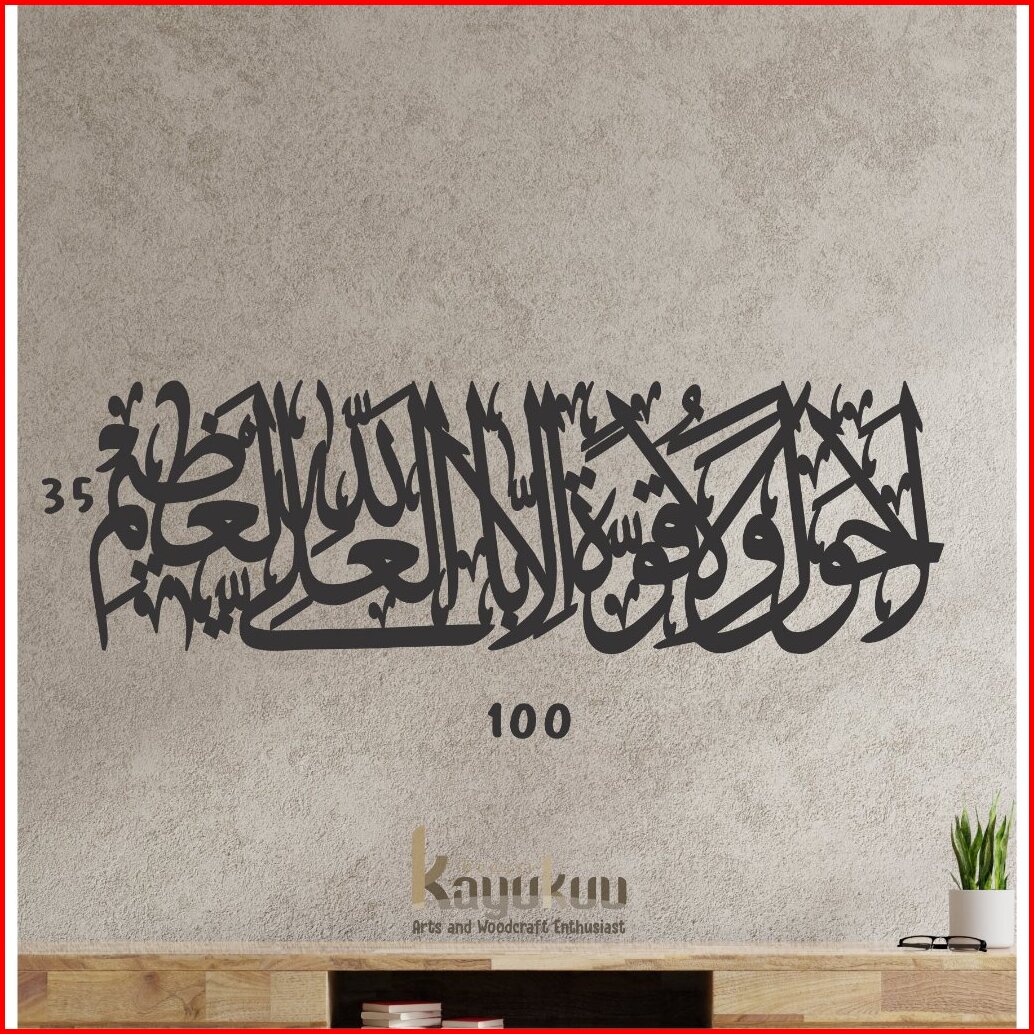 لا حول ولا قوة الا بالله العلي العظيم
35
100
Kayukuu
Arts and Woodcraft Enthusiast